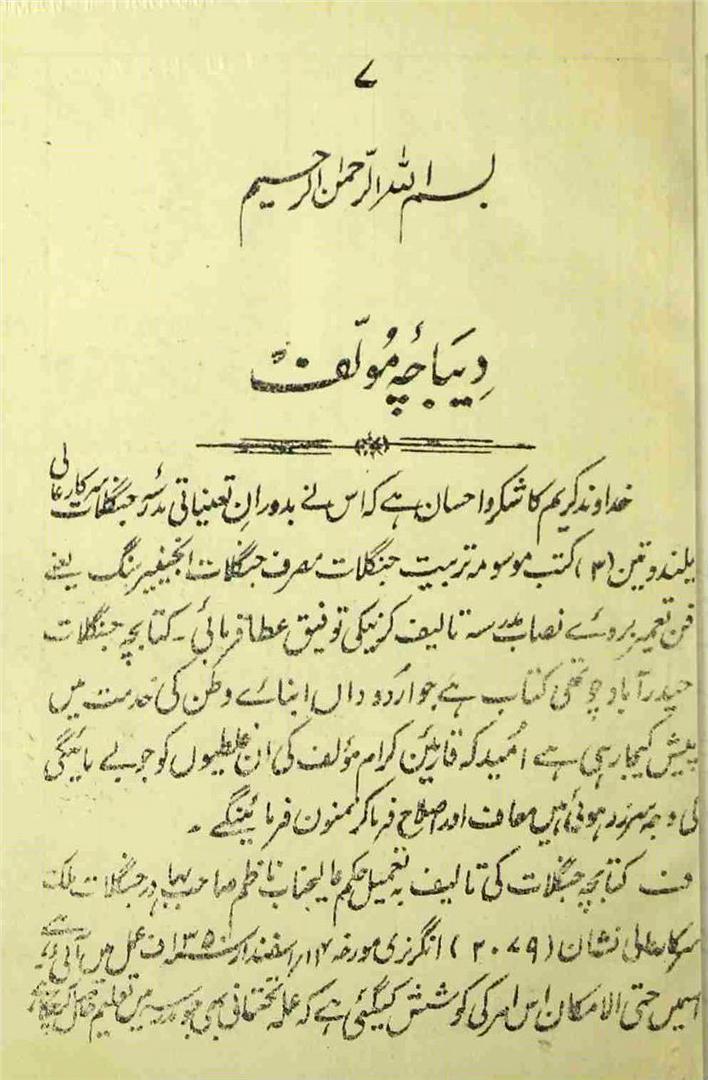 ۷
بسم اللہ الرّحمٰن الرحیم
دِیبَاچۂ مُولّف
خداوند کریم کا شکر و احسان ہے کہ اس نے بدورانِ تعیناتی مدرسۂ جنگلات سرکار عالی
یلندو تین (۳) کتب موسومہ تربیت جنگلات مصرف جنگلات انجینیرنگ یعنے
فن تعمیر بروئے نصاب مدرسہ تالیف کرنیکی توفیق عطا فرمائی۔ کتابچہ جنگلات
حیدرآباد چوتھی کتاب ہے جو اُردو داں ابنائے وطن کی خدمت میں
پیش کیجا رہی ہے اُمید کہ قارئین کرام مؤلف کی ان غلطیوں کو جو بے مائیگی
کی وجہ سرزد ہوئی ہیں معاف اور اصلاح فرما کر ممنون فرمائینگے۔
ف کتابچہ جنگلات کی تالیف بہ تعمیل حکم عالیجناب ناظم صاحب بہادر جنگلات ملک
سرکار عالی نشان (۲۰۷۹) انگریزی مورخہ ۱۴؍ اسفندار ۱۳۵۰ف عمل میں آئی ہے
اسمیں حتی الامکان اس امر کی کوشش کیگئی ہے کہ عملہ تحتانی بھی جو مدرسہ میں تعلیم حاصل